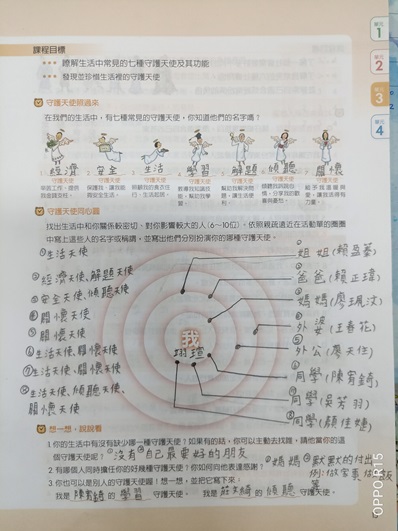 課程目標
瞭解生活中常見的七種守護天使及其功能
發現並珍惜生活裡的守護天使
守護天使照過來
在我們的生活中，有七種常見的守護天使，你知道他們的名字嗎？
經濟 安全 生活 學習 解題 傾聽 關懷
守護天使 守護天使 守護天使 守護天使 守護天使 守護天使 守護天使
守護天使同心圓
找出生活中和你關係較密切、對你影響較大的人（6～10位）。依照親疏遠近在活動單的圈圈
中寫上這些人的名字或稱謂，並寫出他們分別扮演你的哪種守護天使。
①生活天使
②經濟天使、解題天使
③安全天使、傾聽天使
④關懷天使
⑤關懷天使
⑥生活天使、關懷天使
⑦生活天使、關懷天使
⑧生活天使、傾聽天使、
關懷天使
我
翊瑄
①姐姐(賴盈蓁)
②爸爸(賴正瑋)
③媽媽(廖珮汶)
④外婆(王春花)
⑤外公(廖天住)
⑥同學(陳宥錡)
⑦同學(吳芳羽)
⑧同學(顏佳婕)
想一想，說說看
1.你的生活中有沒有缺少哪一種守護天使？如果有的話，你可以主動去找誰，請他當你的這
個守護天使呢？①沒有②自己最要好的朋友
2.有哪個人同時擔任你的好幾種守護天使？你如何向他表達感謝？①媽媽②默默的付出
例：做家事
3.你也可以是別人的守護天使喔！想一想，並把它寫下來：
我是 陳宥錡 的 學習 守護天使 我是 的 傾聽 守護天使
單元 1
單元 2
單元 3
單元 4
OPPO R15